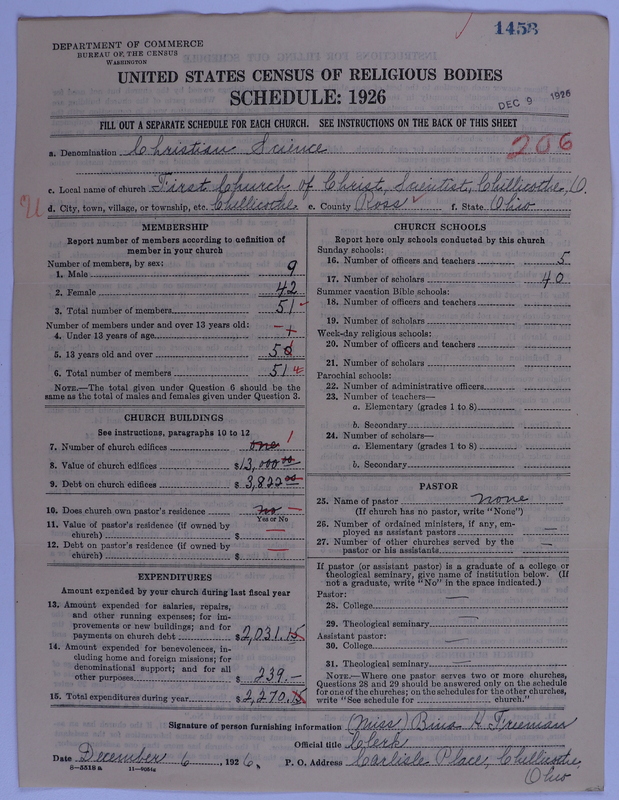 1458
DEPARTMENT OF COMMERCE
BUREAU OF THE CENSUS
WASHINGTON
UNITED STATES CENSUS OF RELIGIOUS BODIES
SCHEDULE: 1926
DEC 9 1926
FILL OUT A SEPARATE SCHEDULE FOR EACH CHURCH. SEE INSTRUCTIONS ON THE BACK OF THIS SHEET
206
a. Denomination Christian Science
c. Local name of church First Church of Christ, Scientist, Chillicothe, O.
d. City, town, village, or township, etc. Chillicothe e. County Ross f. State Ohio
MEMBERSHIP
Report number of members according to definition of
member in your church
Number of members, by sex:
1. Male 9
2. Female 42
3. Total number of members 51
Number of members under and over 13 years old:
4. Under 13 years of age
5. 13 years old and over
6. Total number of members 51
NOTE.—The total given under Question 6 should be the
same as the total of males and females given under Question 3.
CHURCH BUILDINGS
See instructions, paragraphs 10 to 12
7. Number of church edifices one 1
8. Value of church edifices $13,000.00
9. Debt on church edifices $3,822.00
10. Does church own pastor's residence no
Yes or No
11. Value of pastor's residence (if owned by
church) $ —
12. Debt on pastor's residence (if owned by
church) $ —
EXPENDITURES
Amount expended by your church during last fiscal year
13. Amount expended for salaries, repairs,
and other running expenses; for im-
provements or new buildings; and for
payments on church debt $2,031.15
14. Amount expended for benevolences, in-
cluding home and foreign missions; for
denominational support; and for all
other purposes $239.—
15. Total expenditures during year $2,270.15
CHURCH SCHOOLS
Report here only schools conducted by this church
Sunday schools:
16. Number of officers and teachers 5
17. Number of scholars 40
Summer vacation Bible schools:
18. Number of officers and teachers
19. Number of scholars
Week-day religious schools:
20. Number of officers and teachers
21. Number of scholars
Parochial schools:
22. Number of administrative officers
23. Number of teachers—
a. Elementary (grades 1 to 8)
b. Secondary
24. Number of scholars—
a. Elementary (grades 1 to 8)
b. Secondary
PASTOR
25. Name of pastor none
(If church has no pastor, write "None")
26. Number of ordained ministers, if any, em-
ployed as assistant pastors —
27. Number of other churches served by the
pastor or his assistants —
If pastor (or assistant pastor) is a graduate of a college or
theological seminary, give name of institution below. (If
not a graduate, write "No" in the space indicated.)
Pastor:
28. College —
29. Theological seminary —
Assistant pastor:
30. College —
31. Theological seminary —
NOTE.—Where one pastor serves two or more churches,
Questions 28 and 29 should be answered only on the schedule
for one of the churches; on the schedules for the other churches,
write "See schedule for church."
Signature of person furnishing information (Miss) Bina H. Freeman
Official title Clerk
Date December 6, 1926. P. O. Address Carlisle Place, Chillicothe,
Ohio